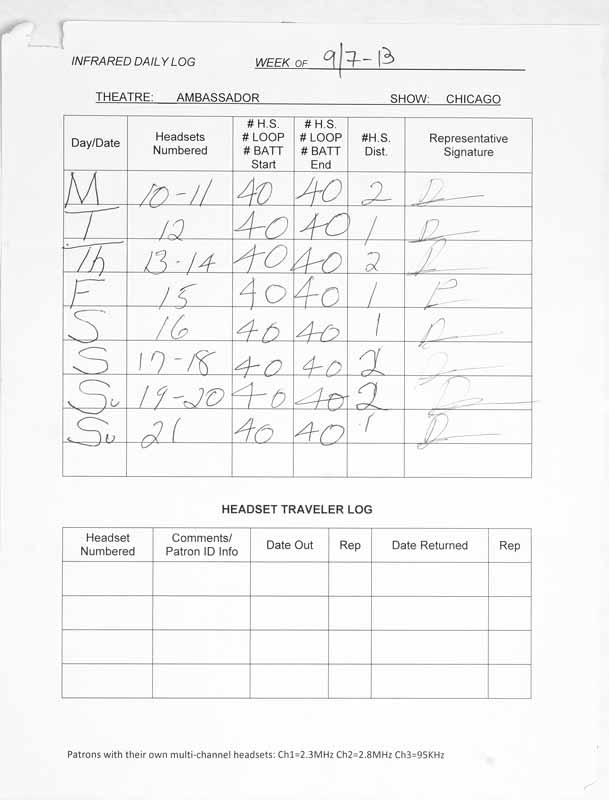 INFRARED DAILY LOG WEEK OF 9/7-13
THEATRE: AMBASSADOR SHOW: CHICAGO
Day/Date Headsets Numbered # H.S. # LOOP # BATT Start # H.S. # LOOP # BATT End #H.S. Dist. Representative Signature
M 10-11 40 40 2
T 12 40 40 1
Th 13-14 40 40 2
F 15 40 40 1
S 16 40 40 1
S 17-18 40 40 2
Su 19-20 40 40 2
Su 21 40 40 1
HEADSET TRAVELER LOG
Headset Numbered Comments/ Patron ID Info Date Out Rep Date Returned Rep
Patrons with their own multi-channel headsets: Ch1=2.3MHz Ch2=2.8MHz Ch3=95KHz